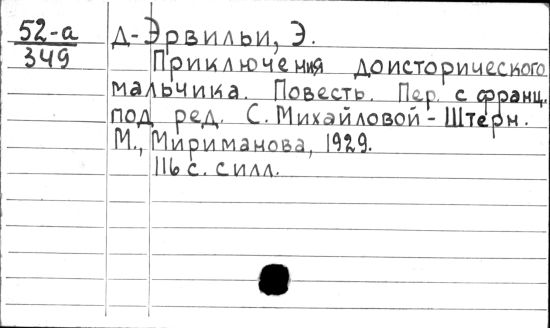 52-а
349
Д-Эрвильи, Э.
Приключения доисторического
мальчика. Повесть. Пер. с франц.
под ред. С. Михайловой-Штерн.
М., Мириманова, 1929.
116 с. с илл.